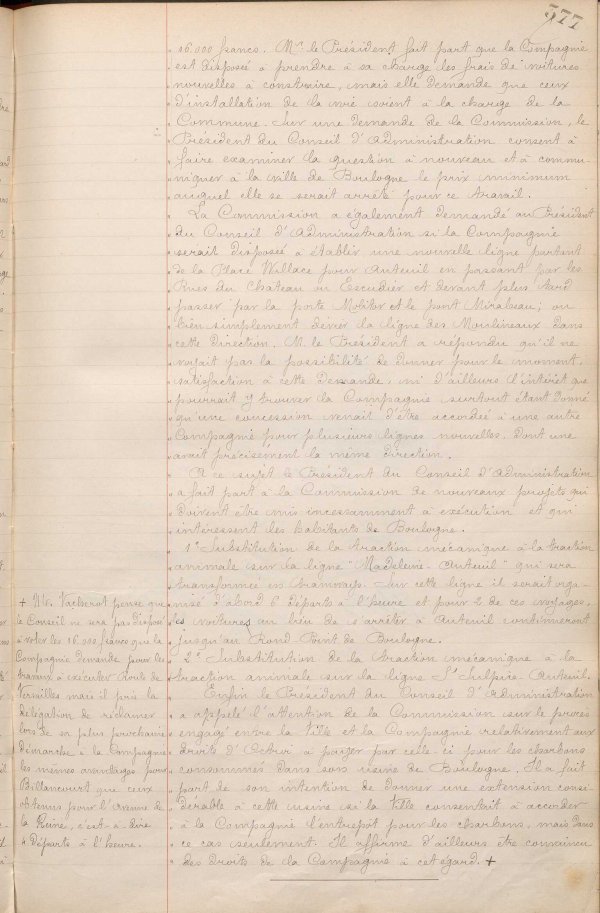 377
16.000 francs. Mr le Président fait part que la Compagnie
est disposée à prendre à sa charge les frais de voitures
nouvelles à construire, mais elle demande que ceux
d'installation de la voie soient à la charge de la
Commune. Sur une demande de la Commission, le
Président du Conseil d'Administration consent à
faire examiner la question à nouveau et à commu-
niquer à la ville de Boulogne le prix minimum
auquel elle se serait arrêté pour ce travail.
La Commission a également demandé au Président
du Conseil d'Administration si la Compagnie
serait disposée à établir une nouvelle ligne partant
de la Place Wallace pour Auteuil en passant par les
Rues du Chateau ou Escudier et devant plus tard
passer par la porte Molitor et le pont Mirabeau; ou
bien simplement dévier la ligne des Moulineaux dans
cette direction. M. le Président a répondu qu'il ne
voyait pas la possibilité de donner pour le moment,
satisfaction à cette demande, ni d'ailleurs l'intérêt que
pourrait y trouver la Compagnie surtout étant donné
qu'une concession venait d'être accordée à une autre
Compagnie pour plusieurs lignes nouvelles, dont une
avait précisément la même direction.
A ce sujet le Président du Conseil d'Administration
a fait part à la Commission de nouveaux projets qui
doivent être mis incessamment à exécution et qui
intéressent les habitants de Boulogne.
1° Substitution de la traction mécanique à la traction
animale sur la ligne "Madeleine-Auteuil" qui sera
transformée en tramways. Sur cette ligne il serait orga-
nisé d'abord 6 départs à l'heure et pour 2 de ces voyages,
les voitures au lieu de s'arrêter à Auteuil continueront
jusqu'au Rond Point de Boulogne.
2° Substitution de la traction mécanique à la
traction animale sur la ligne St Sulpice-Auteuil.
Enfin le Président du Conseil d'Administration
a appelé l'attention de la Commission sur le procès
engagé entre la Ville et la Compagnie relativement aux
droits d'Octroi à payer par celle-ci pour les charbons
consommés dans son usine de Boulogne. Il a fait
part de son intention de donner une extension consi-
dérable à cette usine si la Ville consentait à accorder
à la Compagnie l'entrepôt pour les charbons, mais dans
ce cas seulement. Il affirme d'ailleurs être convaincu
des droits de la Compagnie à cet égard. +
+ Mr. Vacherot pense que
le Conseil ne sera pas disposé
à voter les 16.000 francs que la
Compagnie demande pour les
travaux à exécuter Route de
Versailles mais il prie la
délégation de réclamer
lors de sa plus prochaine
démarche à la Compagnie
les mêmes avantages pour
Billancourt que ceux
obtenus pour l'Avenue de
la Reine, c'est-à-dire
départs à l'heure.